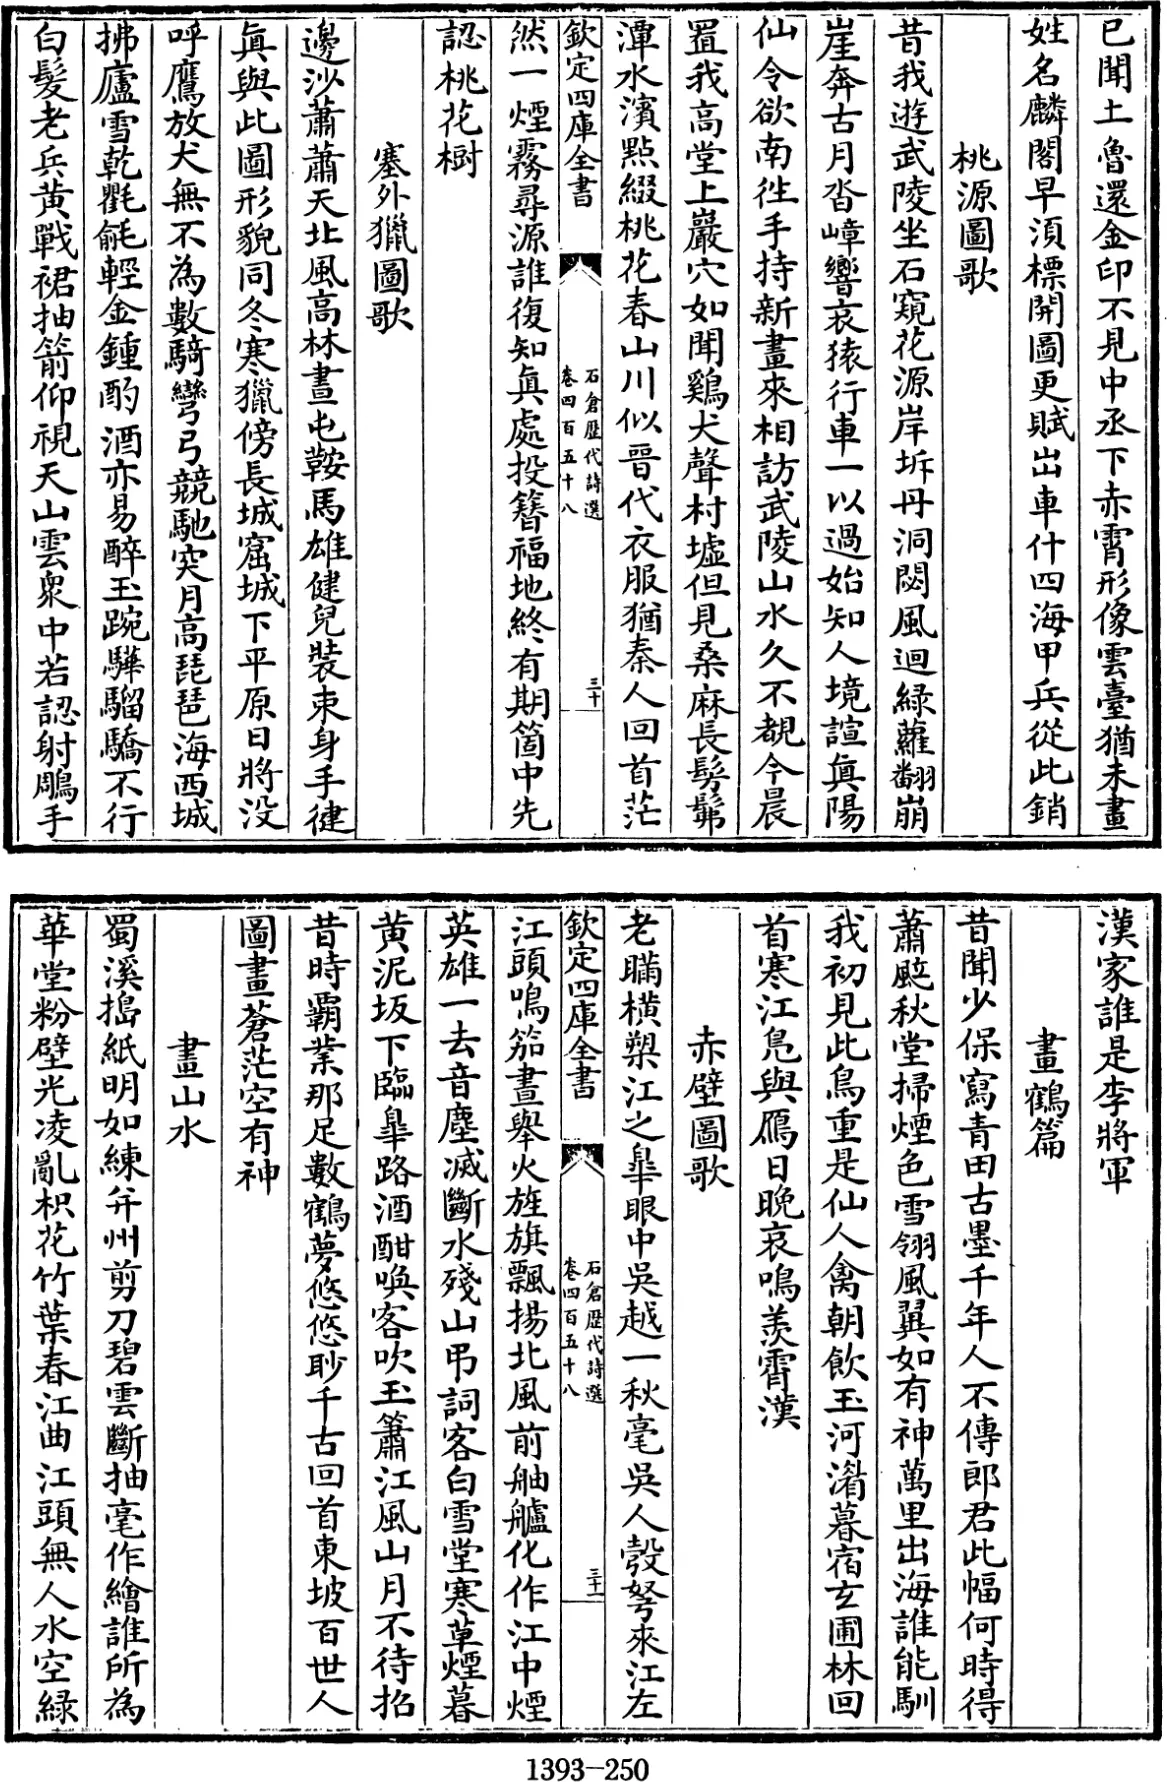 已聞土魯還金印不見中丞下赤霄形像雲臺猶未畫
姓名麟閣早須標開圖更賦出車什四海甲兵從此銷
桃源圖歌
昔我遊武陵坐石窺花源岸坼丹洞閟風迴綠蘿翻崩
崖奔古月沓嶂響哀猿行車一以過始知人境諠眞陽
仙令欲南徃手持新畫來相訪武陵山水久不覩今晨
置我高堂上巖穴如聞鷄犬聲村墟但見桑麻長髣髴
潭水濱點綴桃花春山川似晉代衣服猶秦人回首茫
欽定四庫全書
石倉歷代詩選
卷四百五十八
三十
然一煙霧尋源誰復知眞處投簪福地終有期箇中先
認桃花樹
塞外獵圖歌
邊沙蕭蕭天北風高林晝屯鞍馬雄健兒裝束身手徤
眞與此圖形貌同冬寒獵傍長城窟城下平原日將没
呼鷹放犬無不為數騎彎弓競馳突月高琵琶海西城
拂廬雪乾氍毹輕金鍾酌酒亦易醉玉踠驊騮驕不行
白髮老兵黄戰裙抽箭仰視天山雲衆中若認射鵰手
漢家誰是李將軍
畫鶴篇
昔聞少保寫青田古墨千年人不傳郎君此幅何時得
蕭颭秋堂掃煙色雪翎風翼如有神萬里出海誰能馴
我初見此鳥重是仙人禽朝飲玉河渚暮宿玄圃林回
首寒江鳧與鴈日晚哀鳴羨霄漢
赤壁圖歌
老瞞橫槊江之皐眼中吳越一秋毫吳人彀弩來江左
欽定四庫全書
石倉歷代詩選
卷四百五十八
三十一
江頭鳴笳晝舉火旌旗飄揚北風前舳艫化作江中煙
英雄一去音塵滅斷水殘山弔詞客白雪堂寒草煙暮
黄泥坂下臨皐路酒酣喚客吹玉簫江風山月不待招
昔時覇業那足數鶴夢悠悠眇千古回首東坡百世人
圖畫蒼茫空有神
畫山水
蜀溪搗紙明如練并州剪刀碧雲斷抽毫作繪誰所為
華堂粉壁光凌亂枳花竹葉春江曲江頭無人水空緑
1393-250